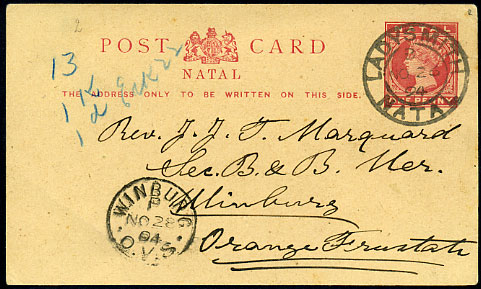 2
POST CARD
NATAL
THE ADDRESS ONLY TO BE WRITTEN ON THIS SIDE.
13
LADYSMITH
P
NO 26
94
NATAL
Rev. J. J. T. Marquard
Sec. B. & B. Ver.
Winburg
Orange Freistaat
WINBURG
P
NO 28
94
O.V.S.